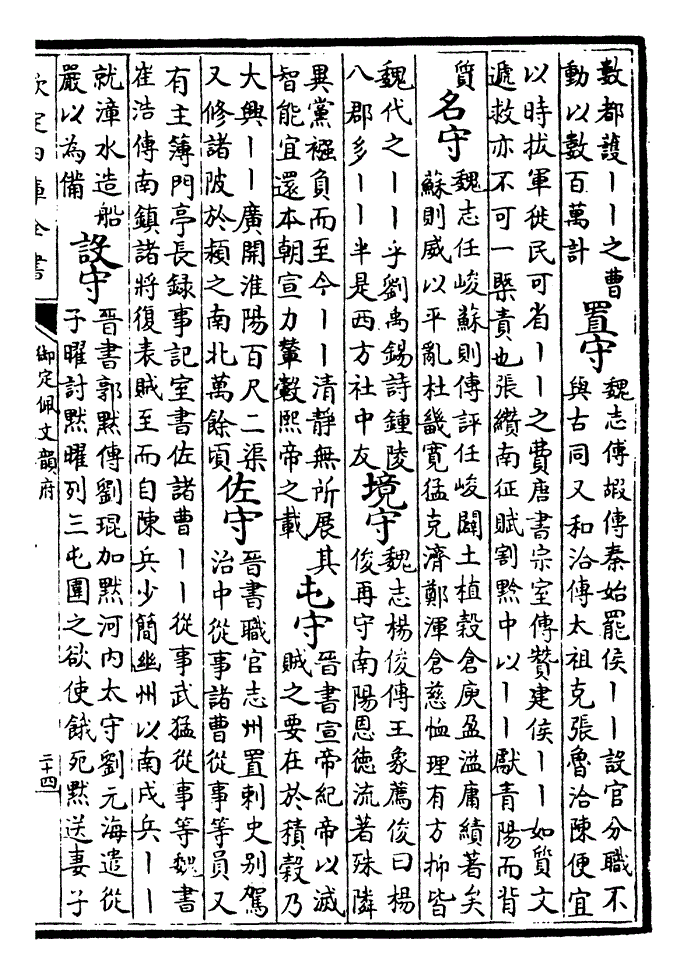 數都護丨丨之曹置守魏志傅嘏傳秦始罷侯丨丨設官分職不
動以數百萬計與古同又和洽傳太祖克張魯洽陳便宜
以時拔軍徙民可省丨丨之費唐書宗室傳贊建侯丨丨如質文
遞救亦不可一槩責也張纘南征賦割黔中以丨丨厭青陽而背
質名守魏志任峻蘇則傳評任峻闢土植穀倉庾盈溢庸績著矣
蘇則威以平亂杜畿寛猛克濟鄭渾倉慈恤理有方抑皆
魏代之丨丨乎劉禹錫詩鍾陵境守魏志楊俊傳王象薦俊曰楊
八郡多丨丨半是西方社中友俊再守南陽恩徳流著殊隣
異黨襁負而至今丨丨清靜無所展其屯守晉書宣帝紀帝以滅
智能宜還本朝宣力輦轂熙帝之載賊之要在於積穀乃
大興丨丨廣開淮陽百尺二渠佐守晉書職官志州置刺史别駕
又修諸陂於頴之南北萬餘頃治中從事諸曹從事等員又
有主簿門亭長録事記室書佐諸曹丨丨從事武猛從事等魏書
崔浩傳南鎮諸將復表賊至而自陳兵少簡幽州以南戍兵丨丨
就漳水造船設守晉書郭默傳劉琨加默河内太守劉元海遣從
嚴以為備子曜討默曜列三屯圍之欲使餓死默送妻子
欽定四庫全書
御定佩文韻府
二十四